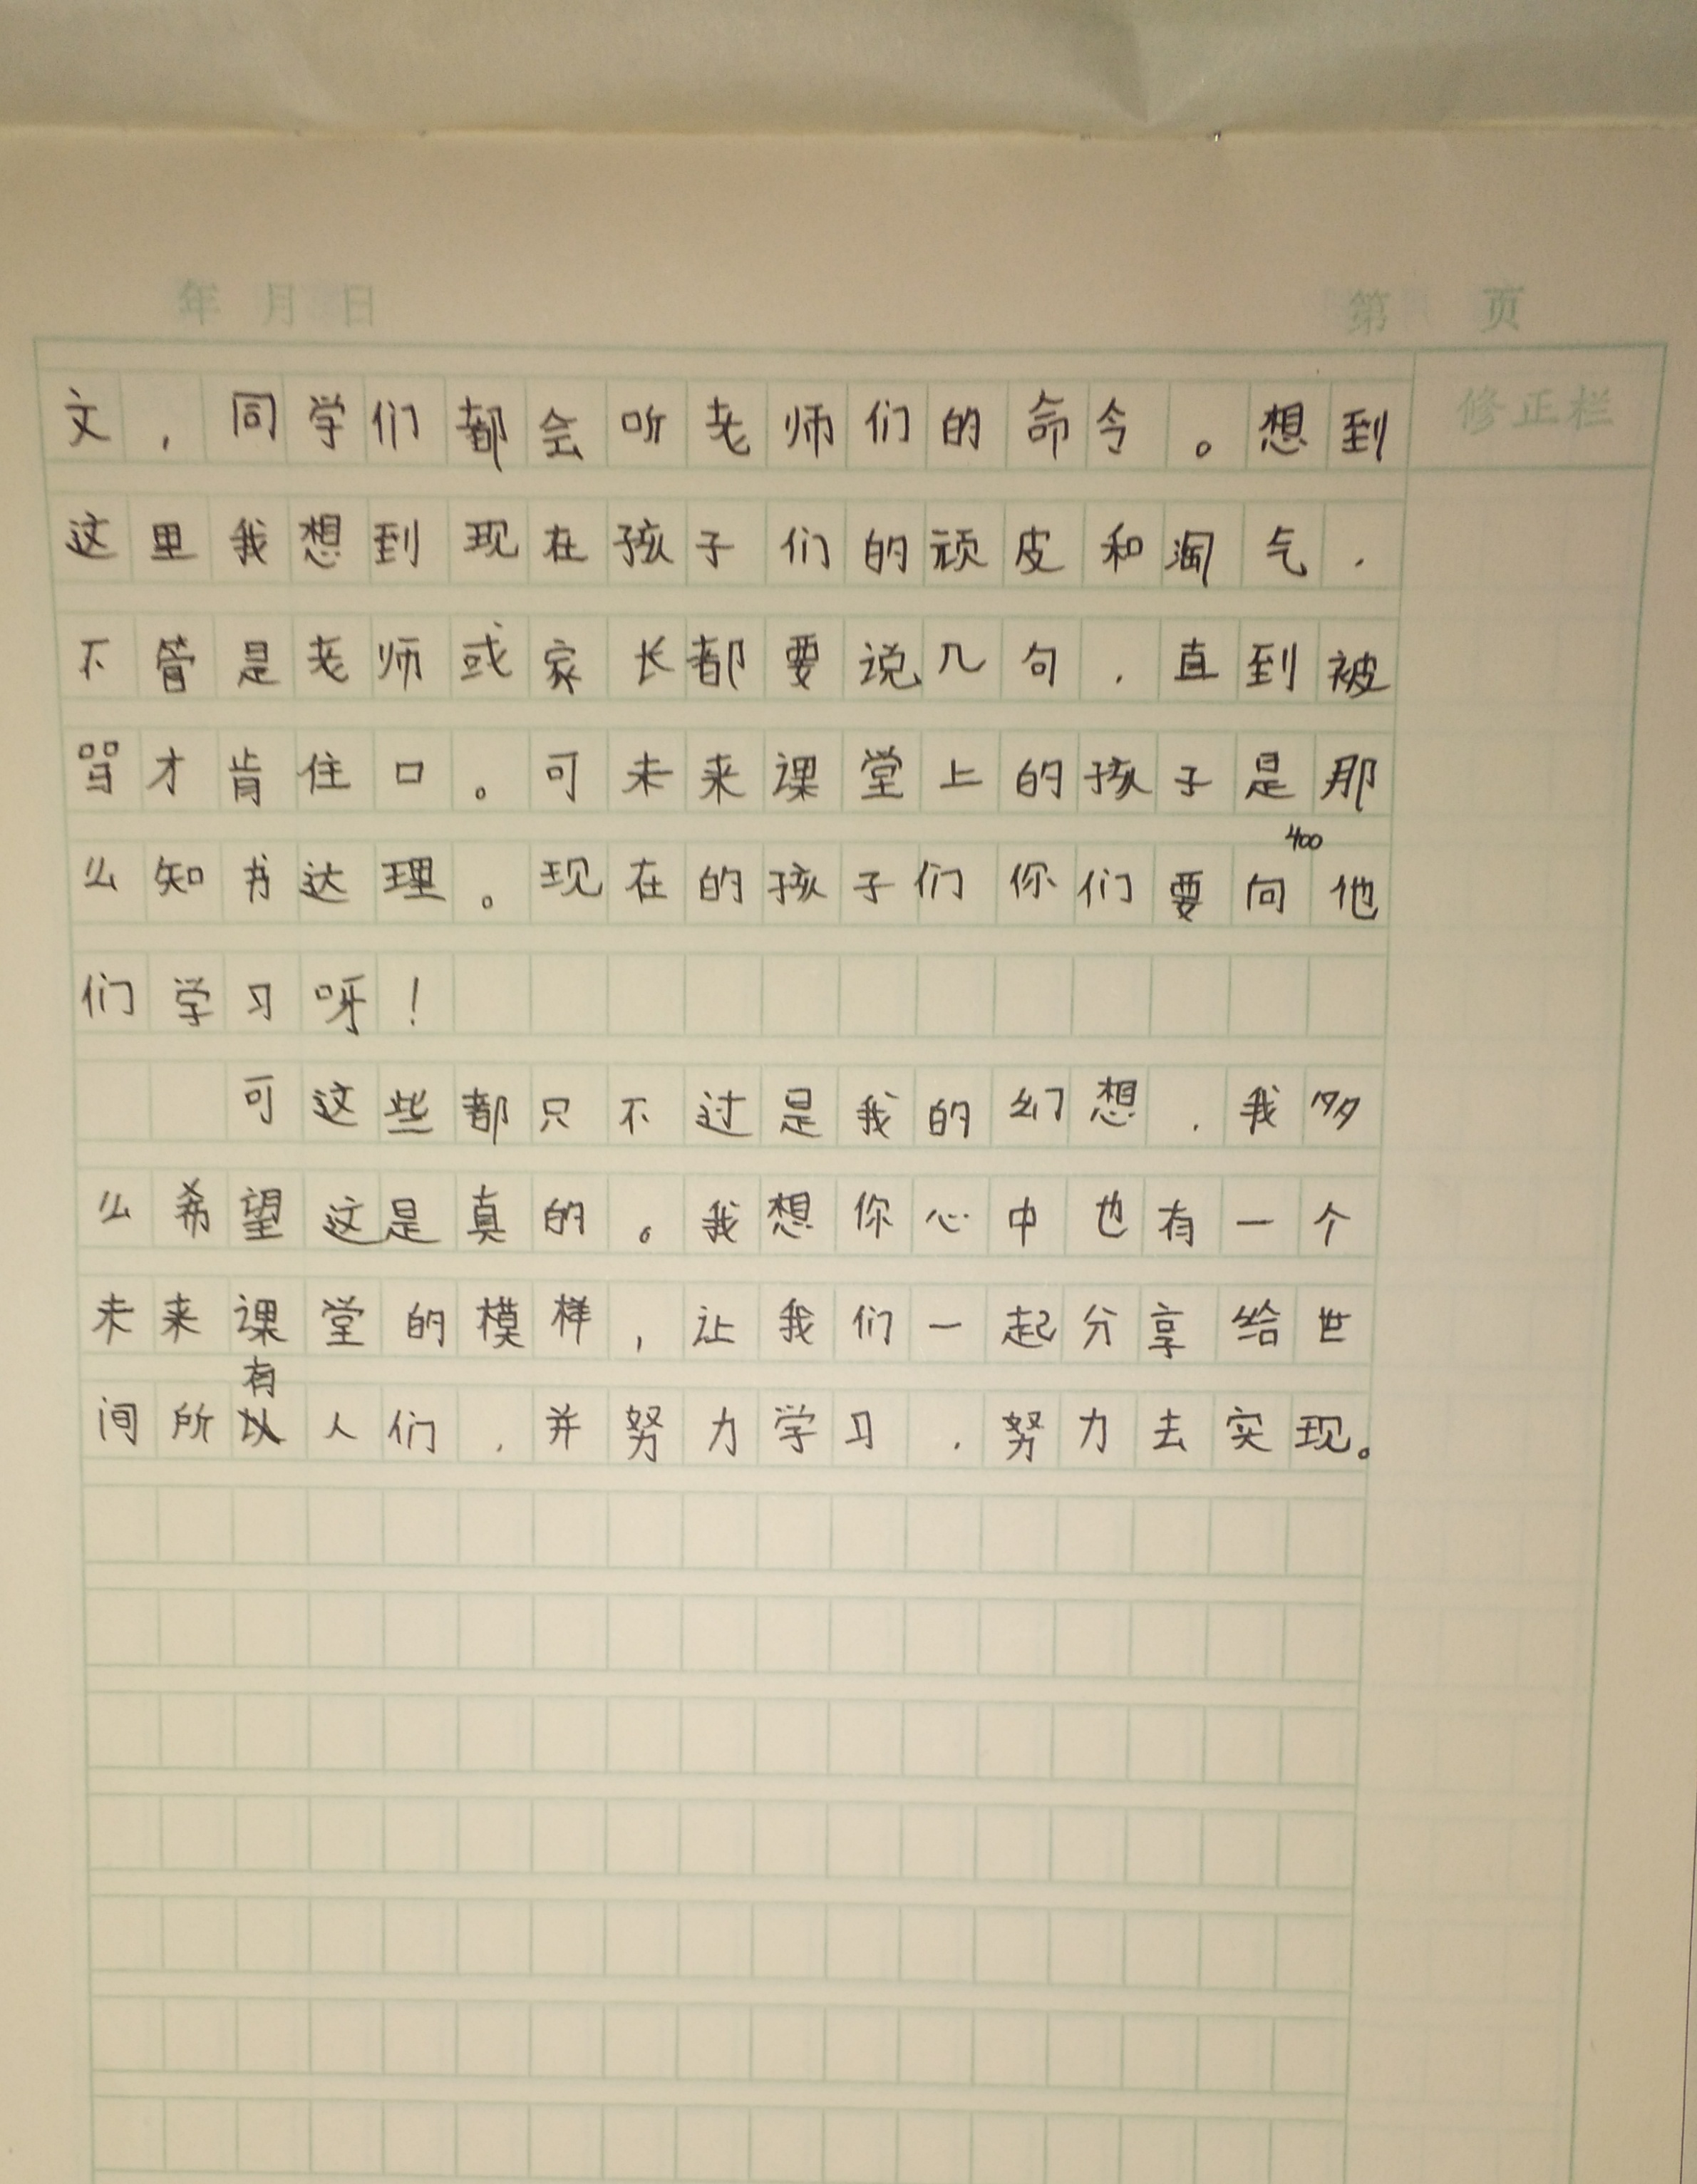 年 月 日 第 页
修正栏
文,同学们都会听老师们的命令。想到
这里我想到现在孩子们的顽皮和淘气,
不管是老师或家长都要说几句,直到被
骂才肯住口。可未来课堂上的孩子是那
400
么知书达理。现在的孩子们你们要向他
们学习呀!
可这些都只不过是我的幻想,我多
么希望这是真的。我想你心中也有一个
未来课堂的模样,让我们一起分享给世
间所有人们,并努力学习,努力去实现。